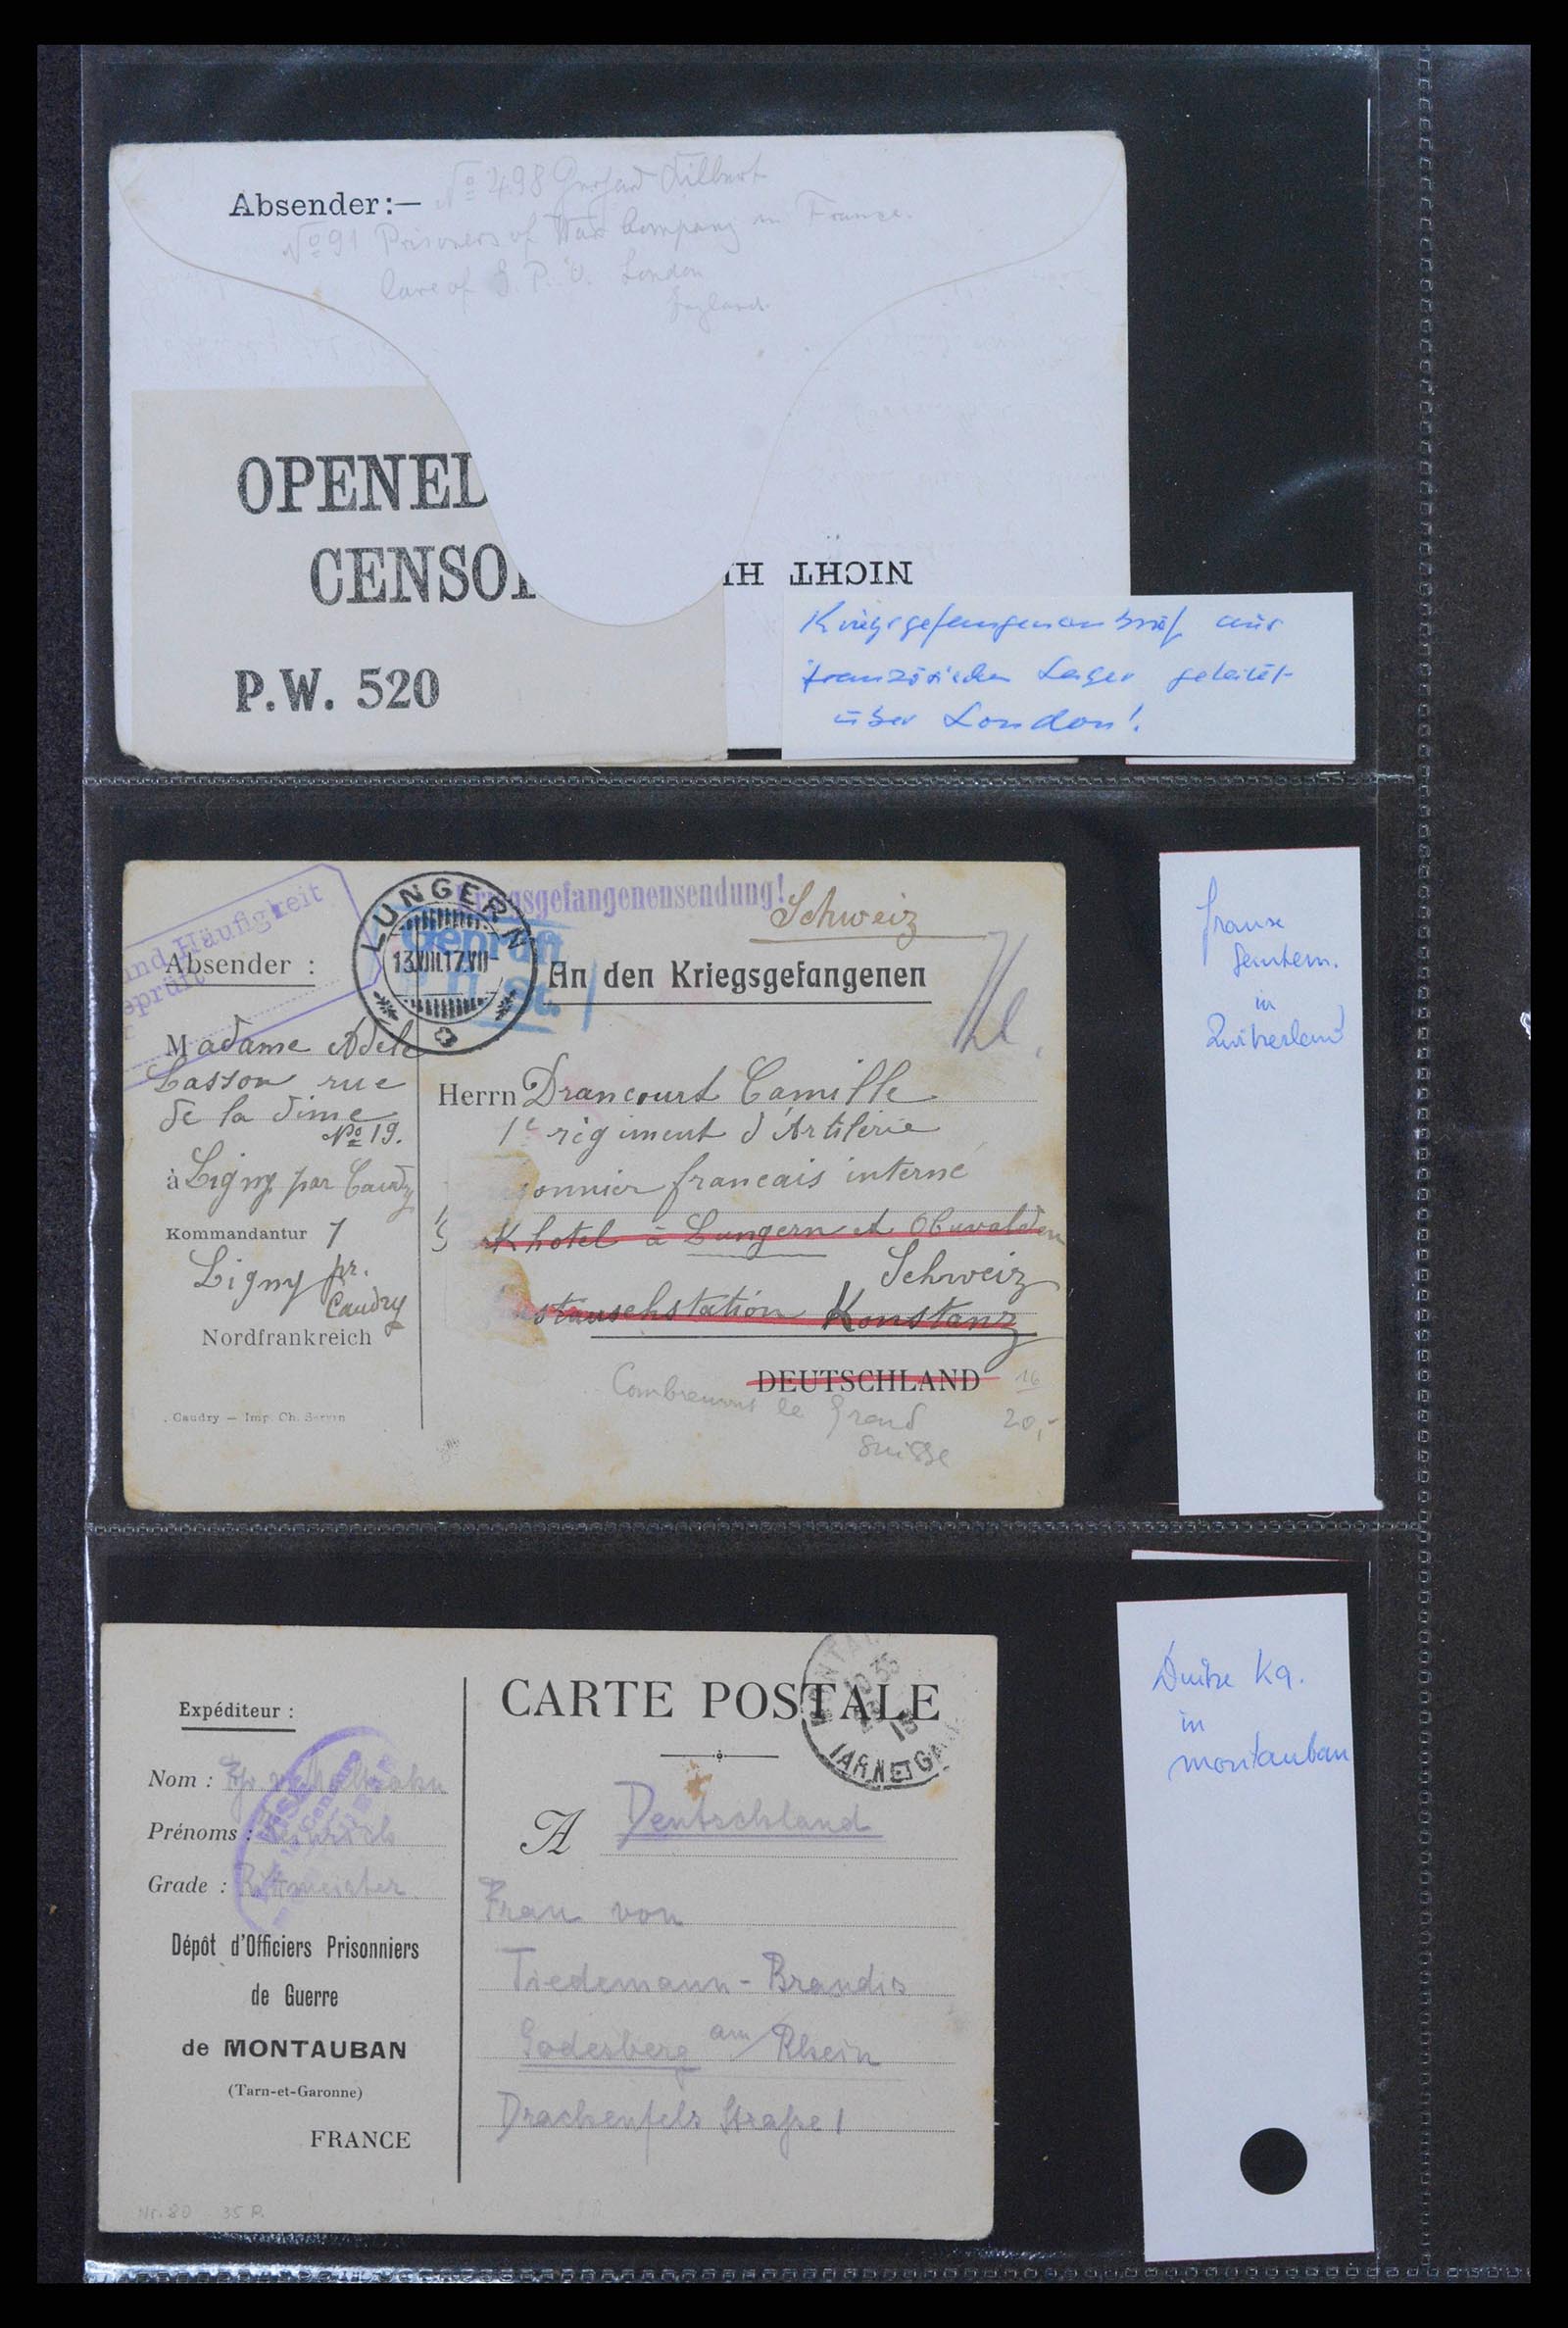 Absender:—
No 498 Gerhard
No 91 Prisoners of War Company in France.
Care of G. P. O. London
England
OPENED
CENSOR
P.W. 520
NICHT HI
Kriegsgefangenenbrief aus
französischen Lager geleitet
über London!
Kriegsgefangenensendung!
Schweiz
und Häufigkeit
geprüft
LUNGERN
13.VIII.17.VII-
Geprüft
Absender :
An den Kriegsgefangenen
Madame Adele
Lasson rue
de la dime
No 19.
à Ligny par Caudry
Kommandantur 7
Ligny pr.
Caudry
Nordfrankreich
Caudry — Imp. Ch. Servin
Herrn Drancourt Camille
1e régiment d'Artilérie
sonnier francais interné
K hotel à Lungern ct Obuvalden
Schweiz
stauschstation Konstanz
DEUTSCHLAND
le Grand
Suisse
16
20,-
franse
in
Zwitserland
CARTE POSTALE
MONTAU
TARN-ET-GA
Expéditeur :
Nom :
Prénoms :
Grade : Rittmeister
Dépôt d'Officiers Prisonniers
de Guerre
de MONTAUBAN
(Tarn-et-Garonne)
FRANCE
A Deutschland
Frau von
Tiedemann-Brandis
Godesberg am/Rhein
Drachenfels Straße 1
Nr. 80 35 P.
Duitse Kg.
in
montauban